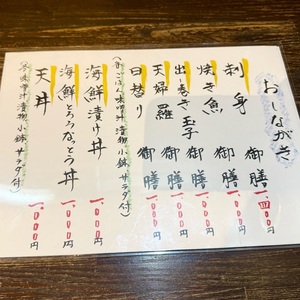 おしながき
刺身御膳 一、四〇〇円
焼き魚御膳 一、〇〇〇円
出し巻き玉子御膳 一、〇〇〇円
天婦羅御膳 一、〇〇〇円
日替り御膳 一、〇〇〇円
ごはん 味噌汁 漬物 小鉢 サラダ付
海鮮漬け丼 一、〇〇〇円
海鮮とろろなっとう丼 一、〇〇〇円
天丼 一、〇〇〇円
味噌汁 漬物 小鉢 サラダ付